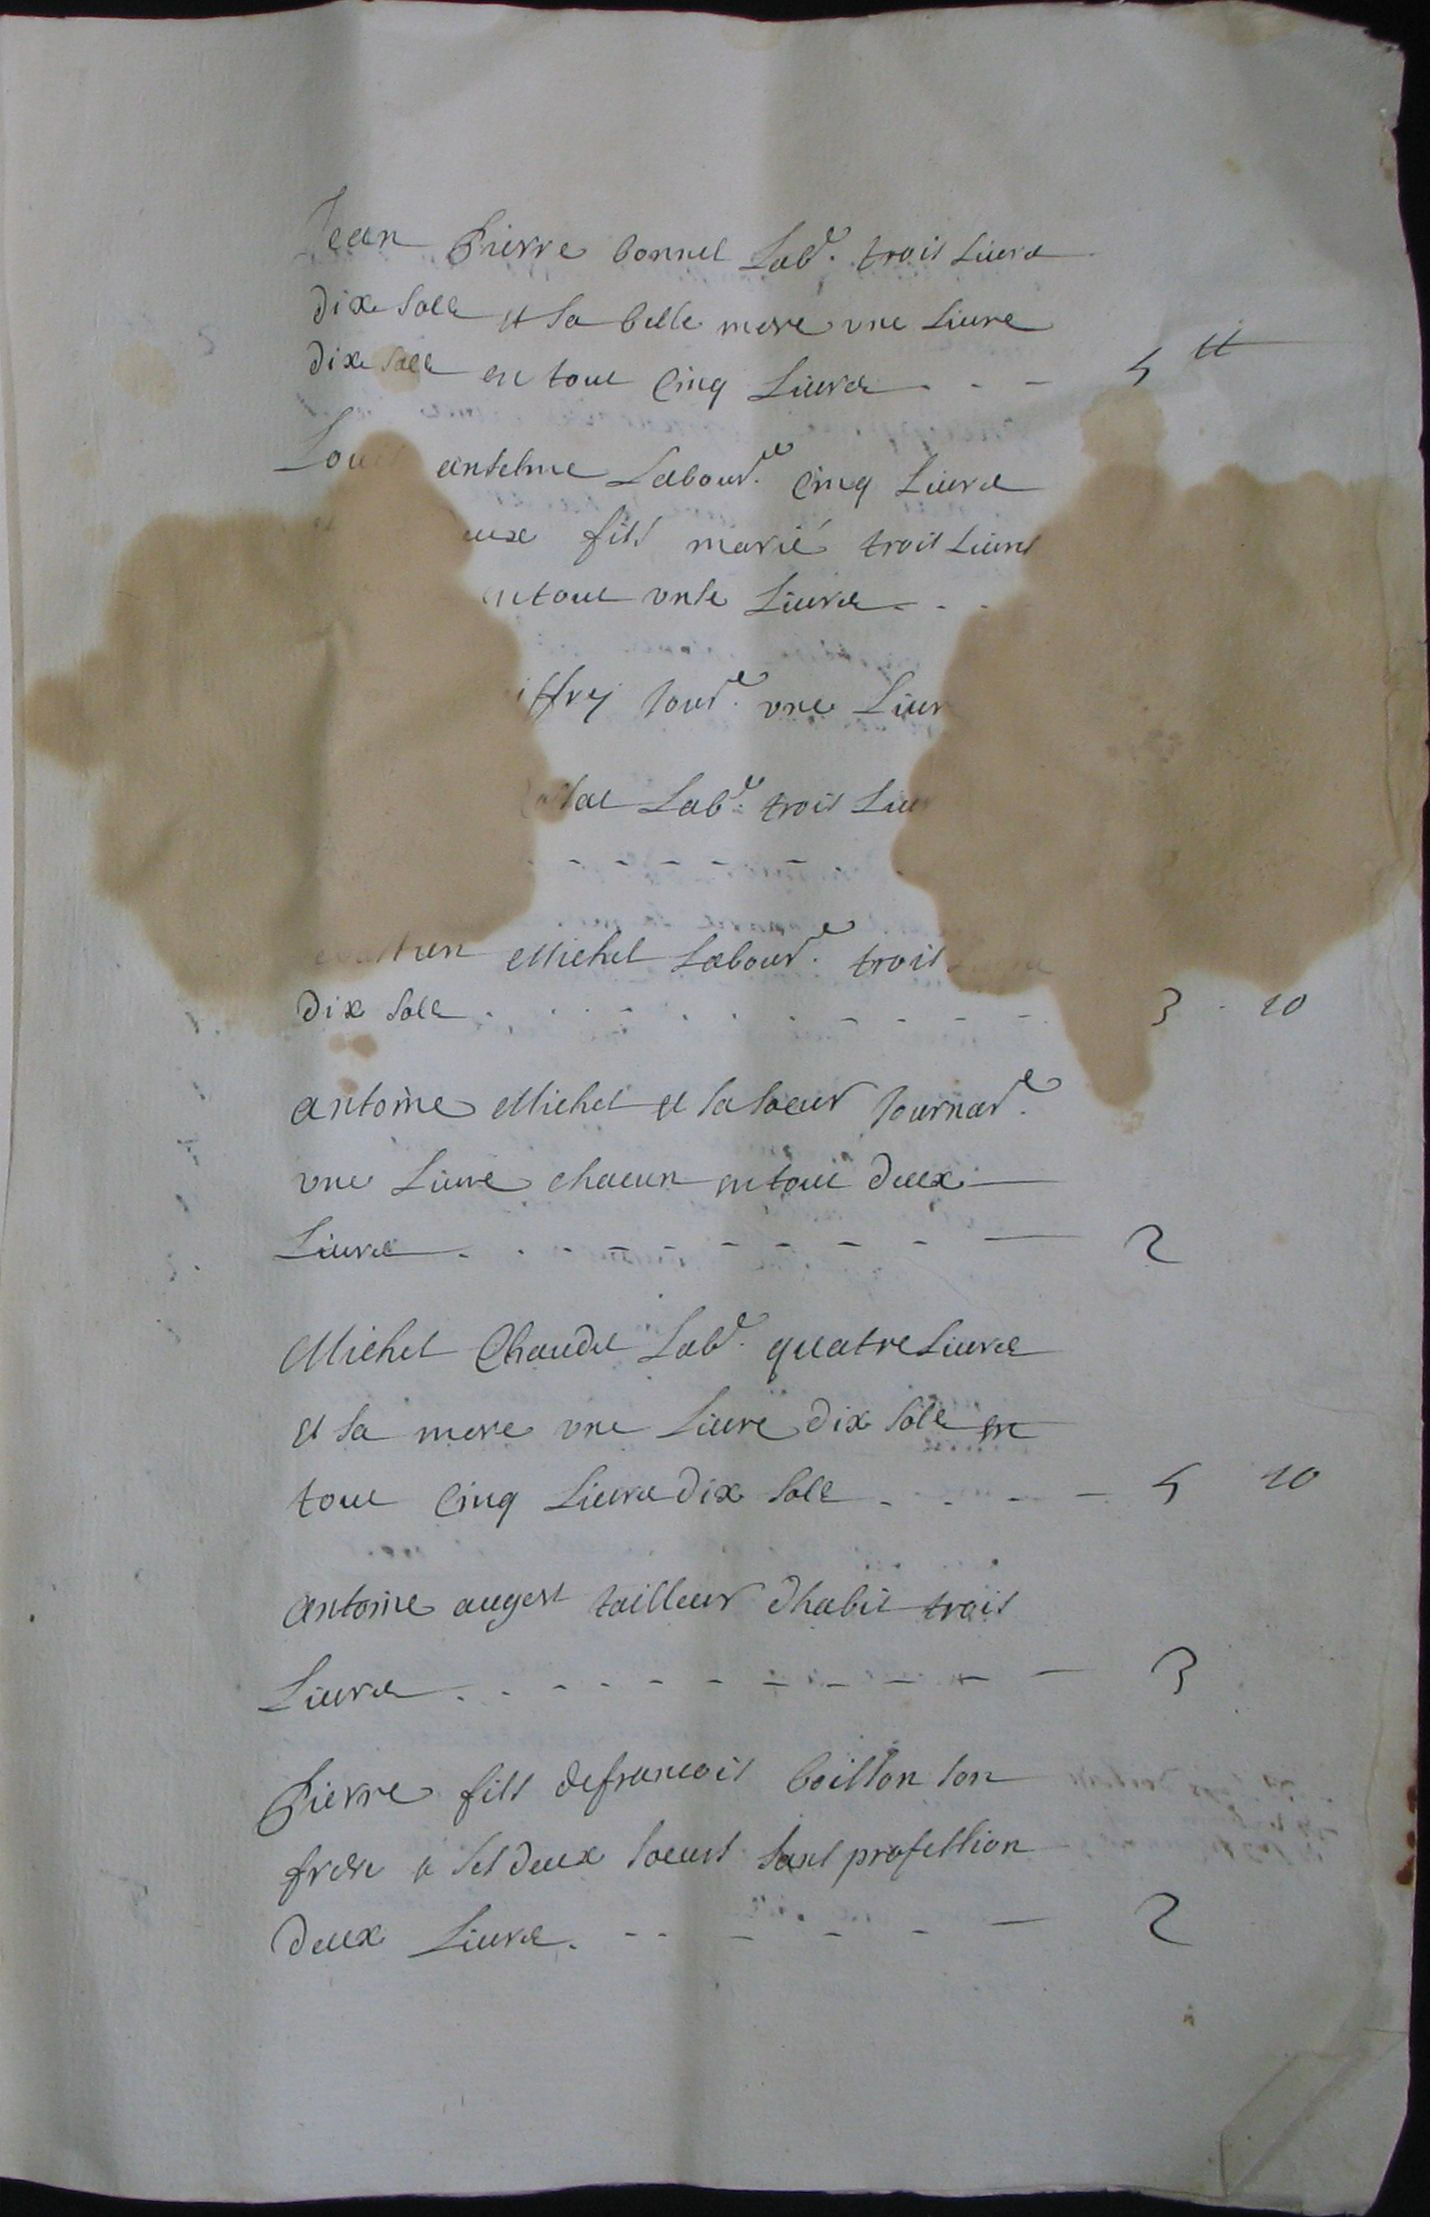 Jean Pierre bonnet Labr. trois Livres
dix sols et sa belle mere une Livre
dix sols en tout Cinq Livres - - - 5 ₶
Louis anselme Labourr. Cinq Livres
eux fils marié trois Livres
en tout onse Livres - - -
iffrej Jourr. une Livr
Labr. trois Livr
- - - - - -
Michel Labourr. trois
dix sols - - - - - - - - - 3 - 10
antoine Michel et sa soeur Journarr.
une Livre chacun en tout deux
Livres - - - - - - - - - 2
Michel Chaudet Labr. quatre Livres
et sa mere une Livre dix sols en
tout Cinq Livres dix sols - - - - 5 10
antoine augest tailleur d'habit trois
Livres - - - - - - - - - - 3
Pierre fils de francois boisson son
frere et ses deux soeurs sans profession
deux Livres - - - - - - 2